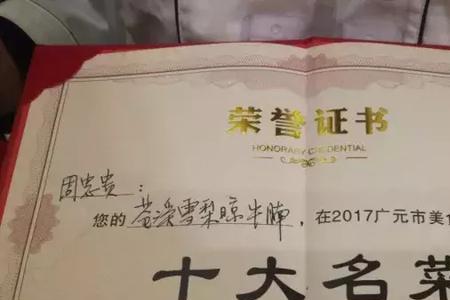 荣誉证书
HONORARY CREDENTIAL
周忠贵:
您的 苍溪雪梨晾牛腩,在2017广元市美
十大名菜